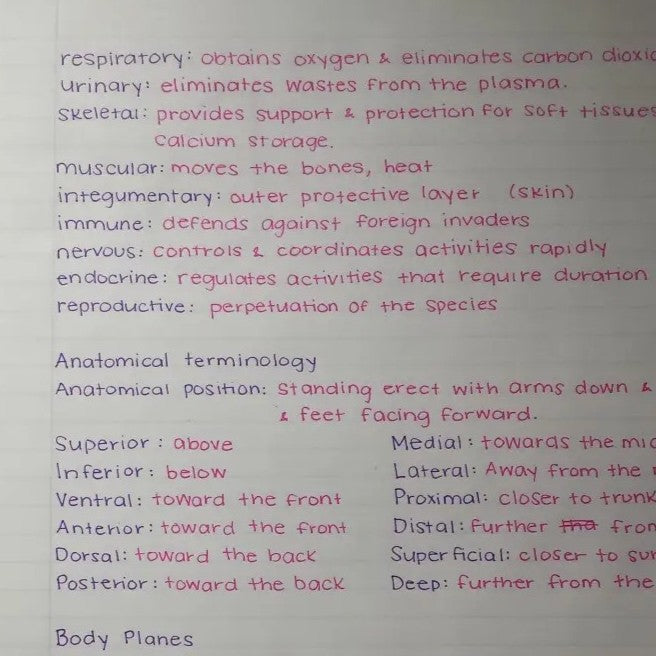 respiratory: obtains oxygen & eliminates carbon
urinary: eliminates wastes from the plasma.
skeletal: provides support & protection for soft tissues
calcium storage.
muscular: moves the bones, heat
integumentary: outer protective layer (skin)
immune: defends against foreign invaders
nervous: controls & coordinates activities rapidly
endocrine: regulates activities that require duration
reproductive: perpetuation of the species
Anatomical terminology
Anatomical position: Standing erect with arms down &
& feet facing forward.
Superior: above Medial: towards the
Inferior: below Lateral: Away from the
Ventral: toward the front Proximal: closer to trunk
Anterior: toward the front Distal: further
Dorsal: toward the back Superficial: closer to
Posterior: toward the back Deep: further from the
Body Planes